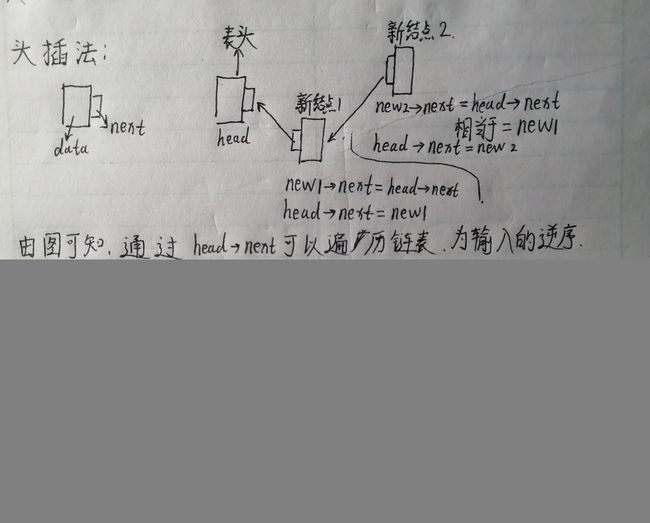 头插法:
表头
新结点2.
新结点1
data
next
head
new2→next=head→next
相当于=new1
head→next=new2
new1→next=head→next
head→next=new1
由图可知,通过head→next可以遍历链表,为输入的逆序.